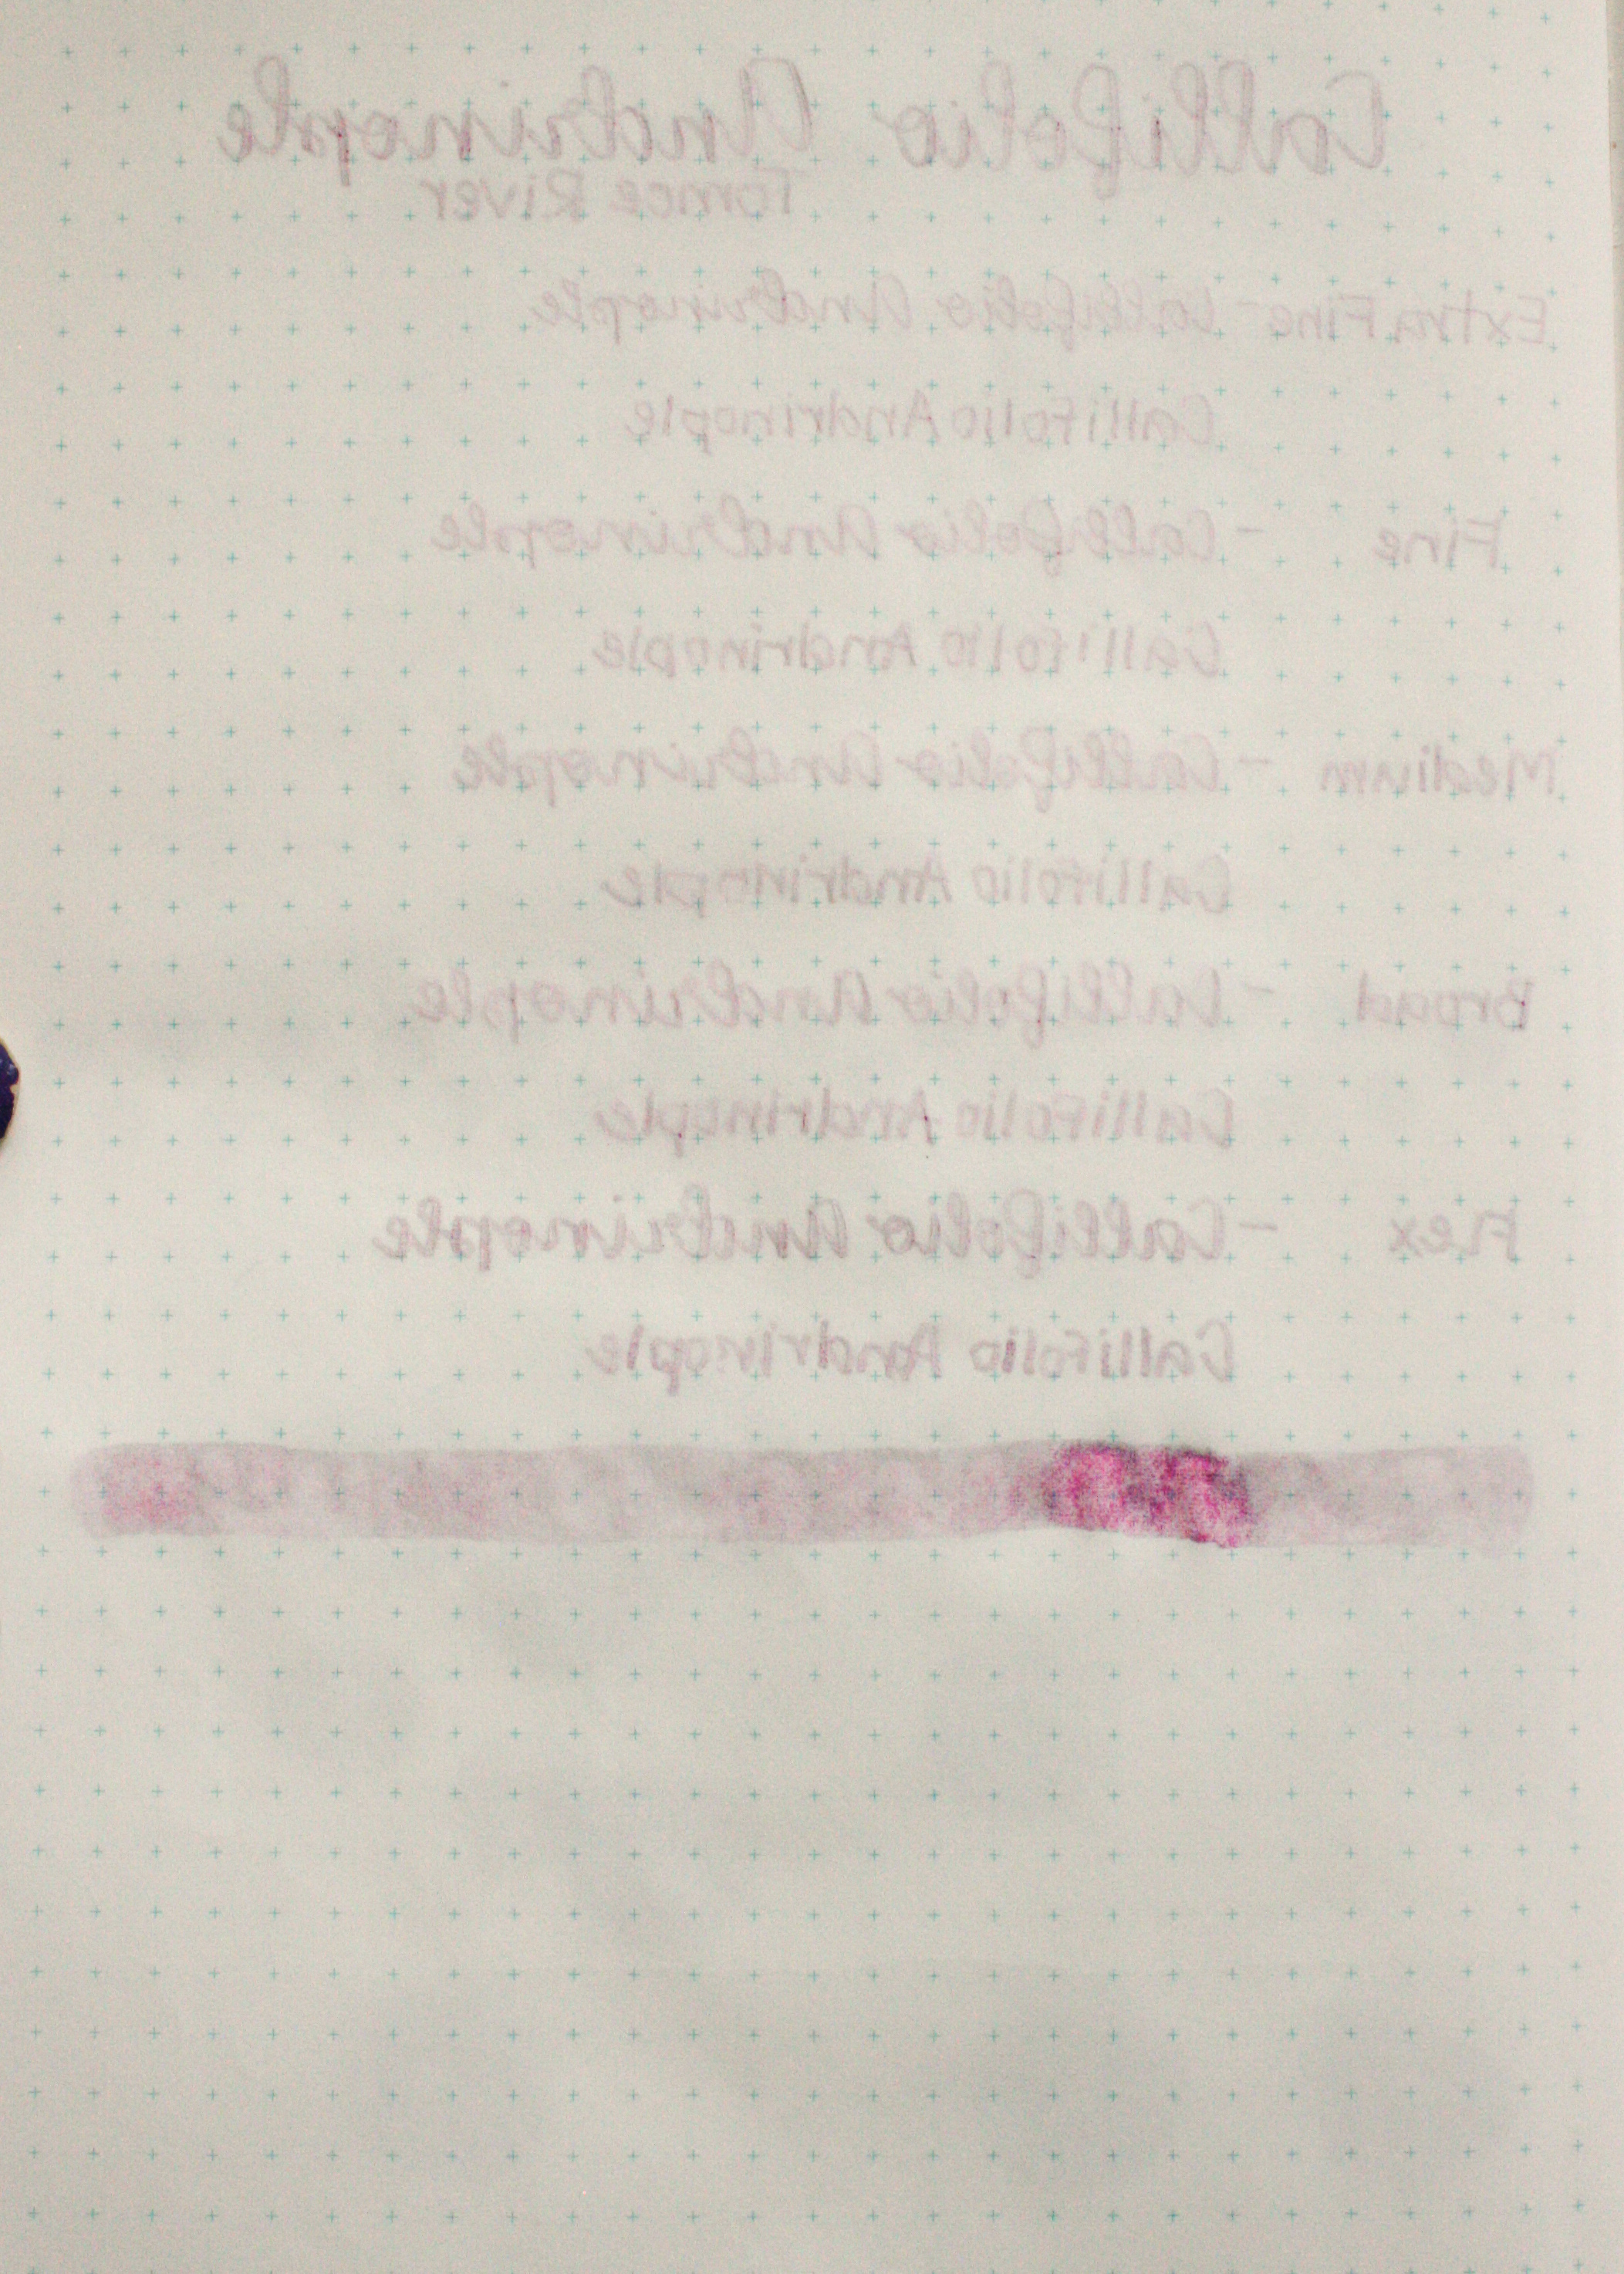 Callifolio Andrinople
Tomoe River
Extra Fine - Callifolio Andrinople
Callifolio Andrinople
Fine - Callifolio Andrinople
Callifolio Andrinople
Medium - Callifolio Andrinople
Callifolio Andrinople
Broad - Callifolio Andrinople
Callifolio Andrinople
Flex - Callifolio Andrinople
Callifolio Andrinople